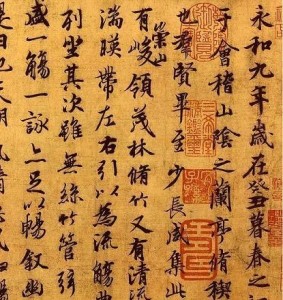 永和九年歲在癸丑暮春之
于會稽山陰之蘭亭脩禊
也羣賢畢至少長咸集此
有崇山峻領茂林脩竹又有清流
湍暎帶左右引以為流觴曲
列坐其次雖無絲竹管弦
盛一觴一詠亦足以暢敘幽
是日也天朗氣清